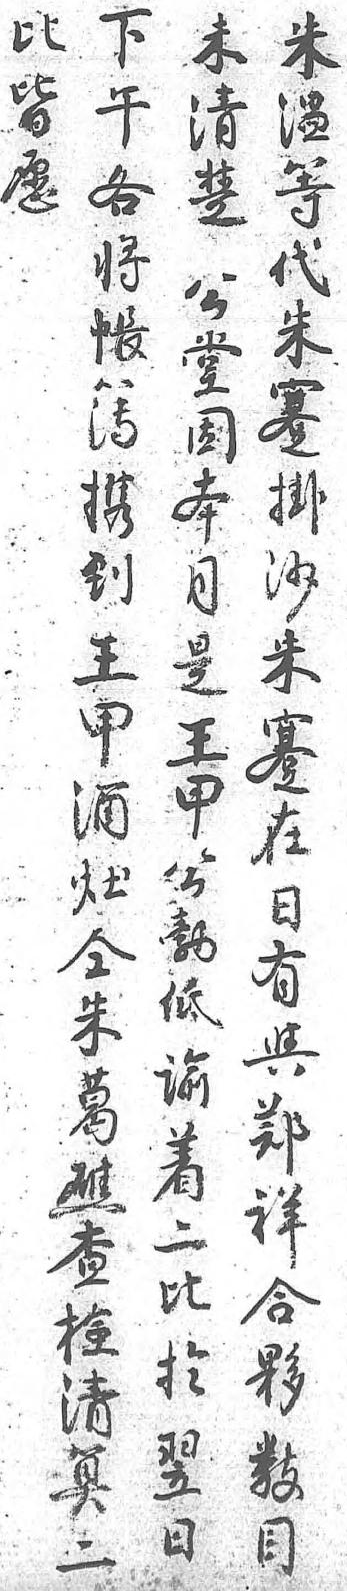 朱温等代朱蹇掛沙朱蹇在日有與鄭祥合夥数目
未清楚公堂因本月是王甲公勃低諭着二比於翌日
下午各将帳簿携到王甲酒灶仝朱葛礁查检清算二
比皆愿